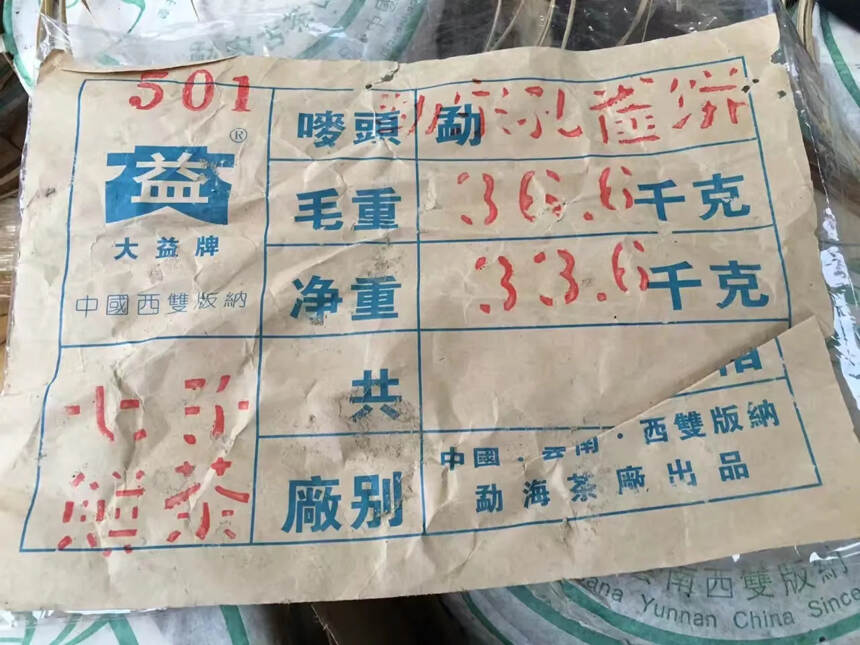 501
®
益
大益牌
中國西雙版納
七子
餅茶
嘜頭 勐 孔雀餅
毛重 36.6千克
净重 33.6千克
共 箱
廠别 中國·云南·西雙版納
勐海茶廠出品
云南西雙版納
Yunnan China Since